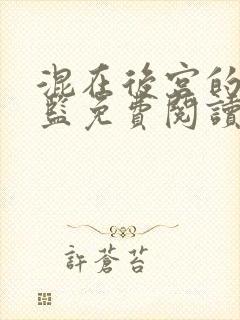 混在後宮的
監免費閱讀
許蒼苔